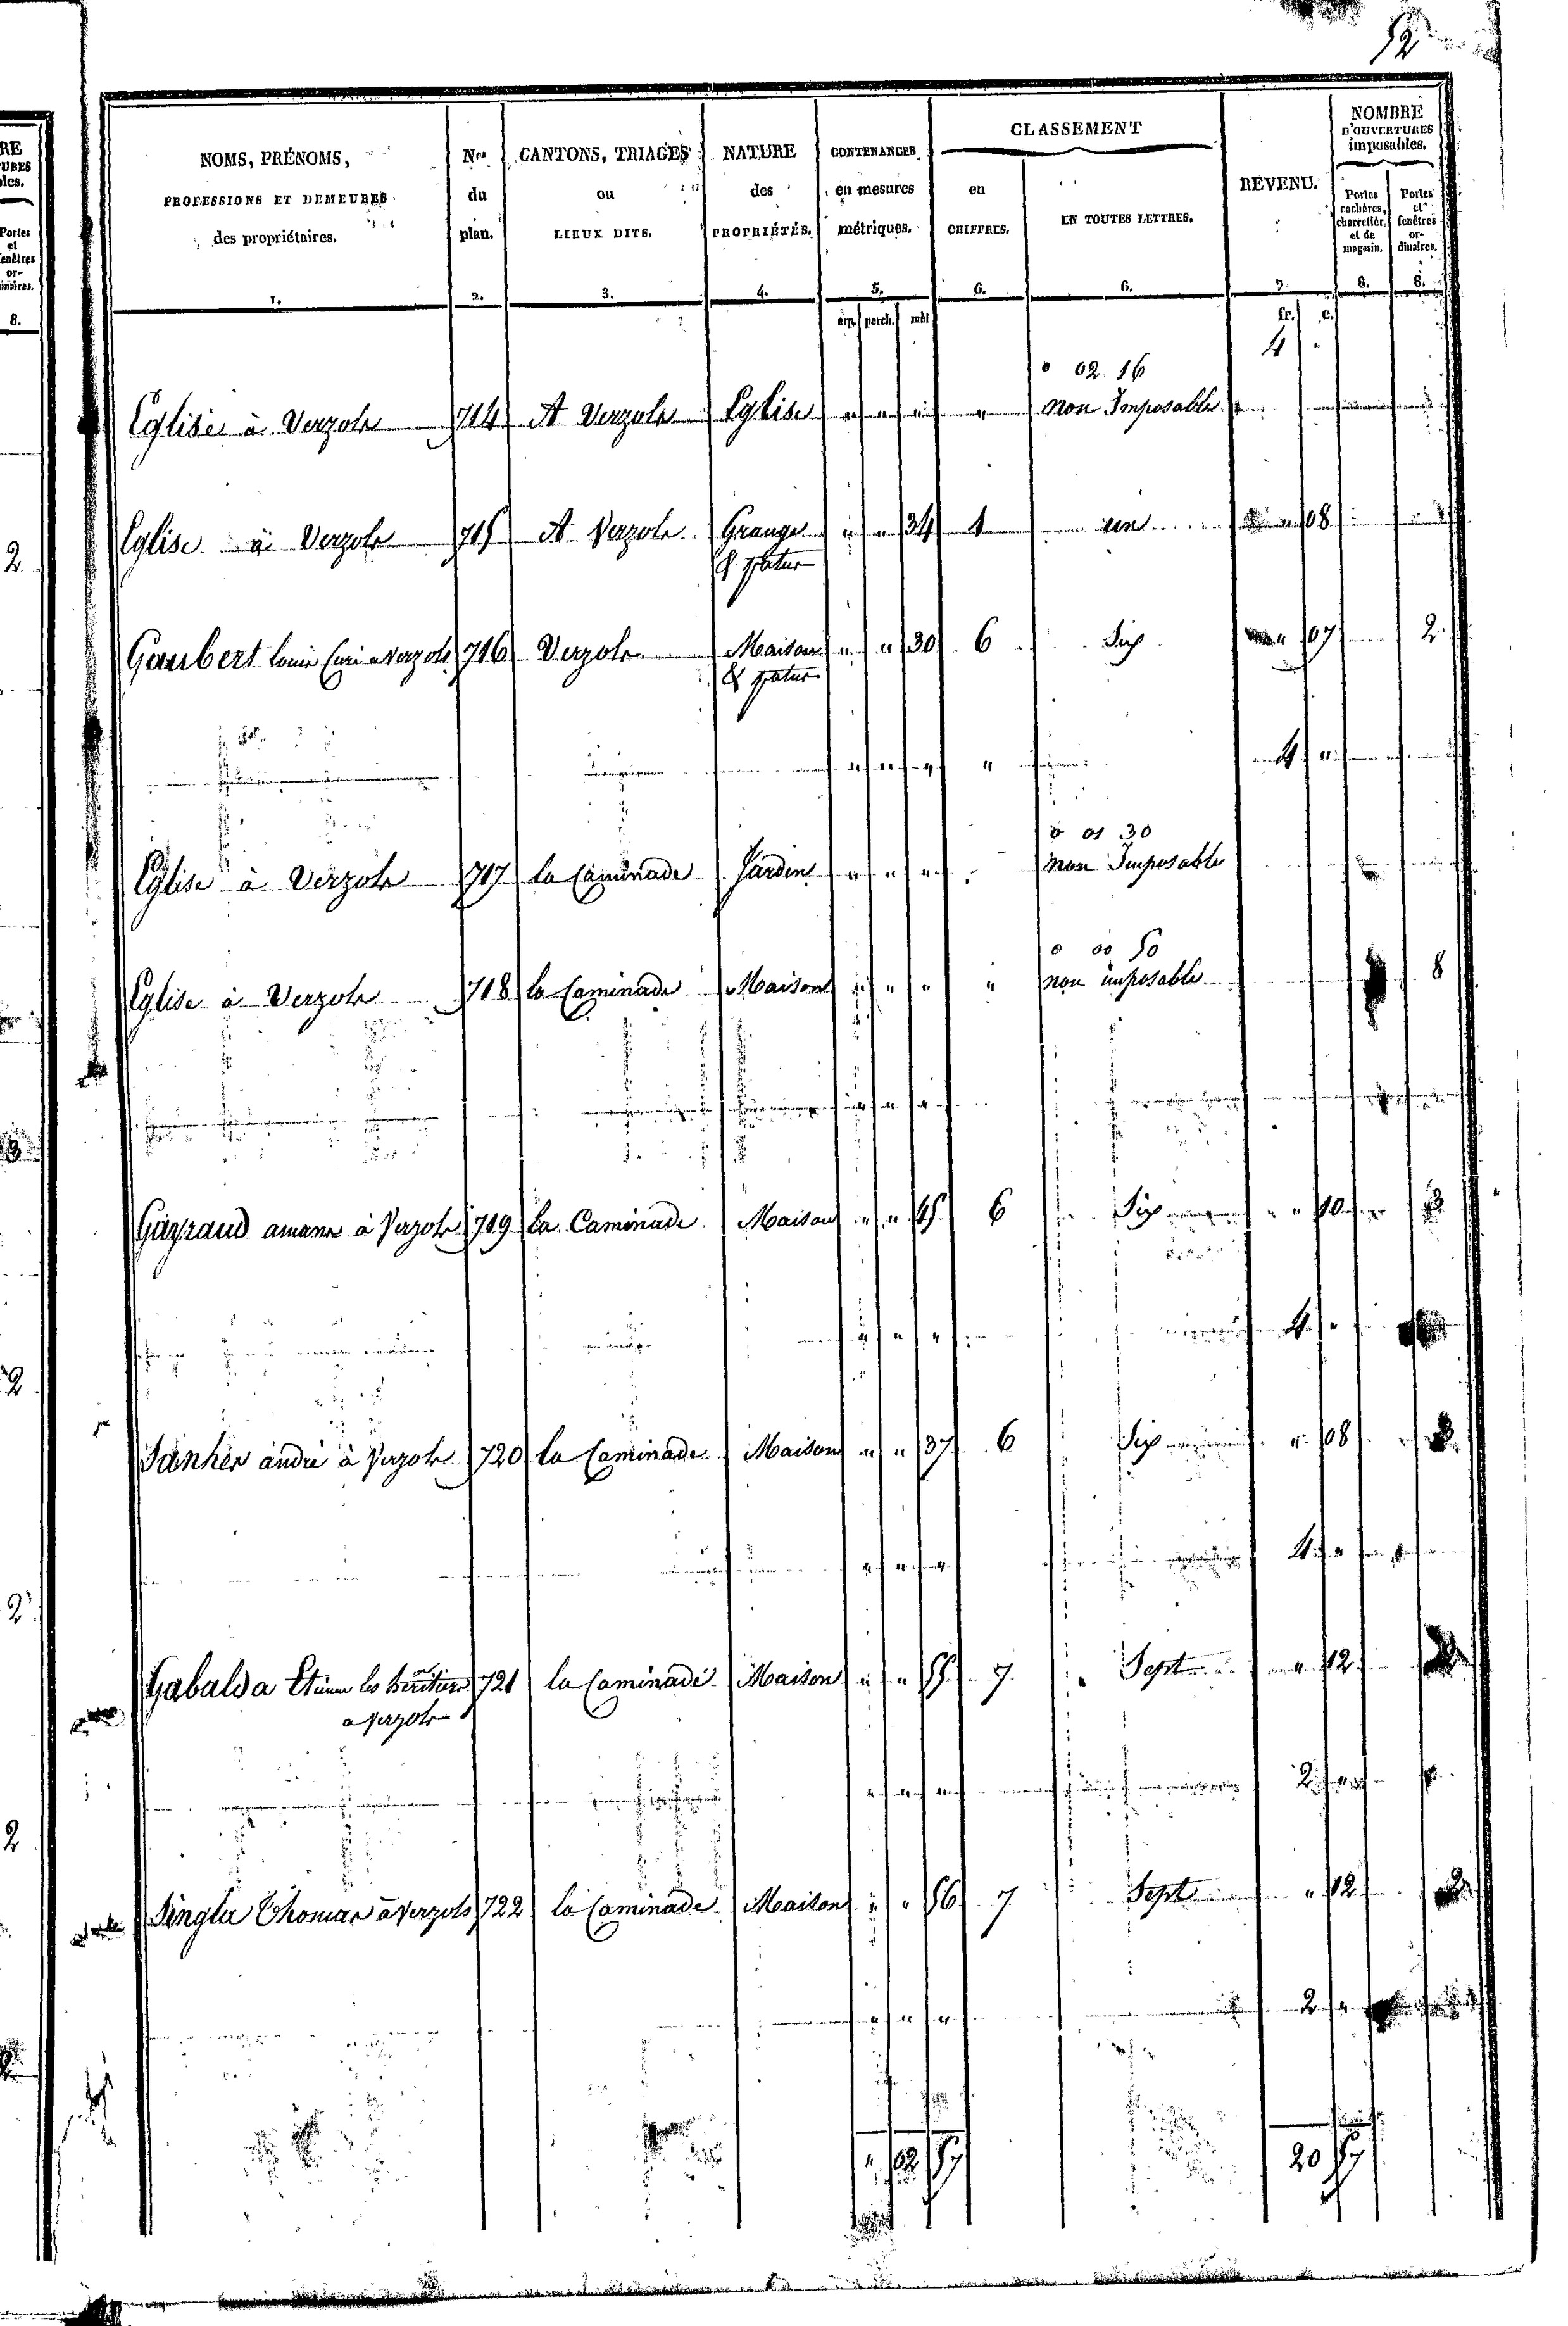 52
NOMS, PRÉNOMS, PROFESSIONS ET DEMEURES des propriétaires.
Nos du plan.
CANTONS, TRIAGES ou LIEUX DITS.
NATURE des PROPRIÉTÉS.
CONTENANCES en mesures métriques.
CLASSEMENT
en CHIFFRES.
EN TOUTES LETTRES.
REVENU.
NOMBRE D'OUVERTURES imposables.
Portes cochères, charretièr. et de magasin.
Portes et fenêtres ordinaires.
1. 2. 3. 4. 5. 6. 6. 7. 8. 8.
arp. perch. mèt. fr. c.
4 "
0 02 16
Eglise à Verzols 714 A Verzols Eglise " " " " non Imposable
Eglise à Verzols 715 A Verzols Grange " " 34 1 un " 08
& patus
Gaubert louis Curé a Verzols 716 Verzols Maison " " 30 6 Six " 07 2
& patus
" " " " 4 "
0 01 30
Eglise à Verzols 717 la Caminade Jardin " " " non Imposable
0 00 50
Eglise à Verzols 718 la Caminade Maison " " " " non imposable 8
" " "
Guyraud amans à Verzols 719 la Caminade Maison " " 45 6 Six " 10
" " " 4 "
andré à Verzols 720 la Caminade Maison " " 37 6 Six " 08
" " " 4 "
Gabalda Etienne les héritiers 721 la Caminade Maison " " 55 7 Sept " 12
a Verzols
" " " 2 "
Singla Thomas à Verzols 722 la Caminade Maison " " 56 7 Sept " 12 2
" " " 2 "
" 02 57 20 57